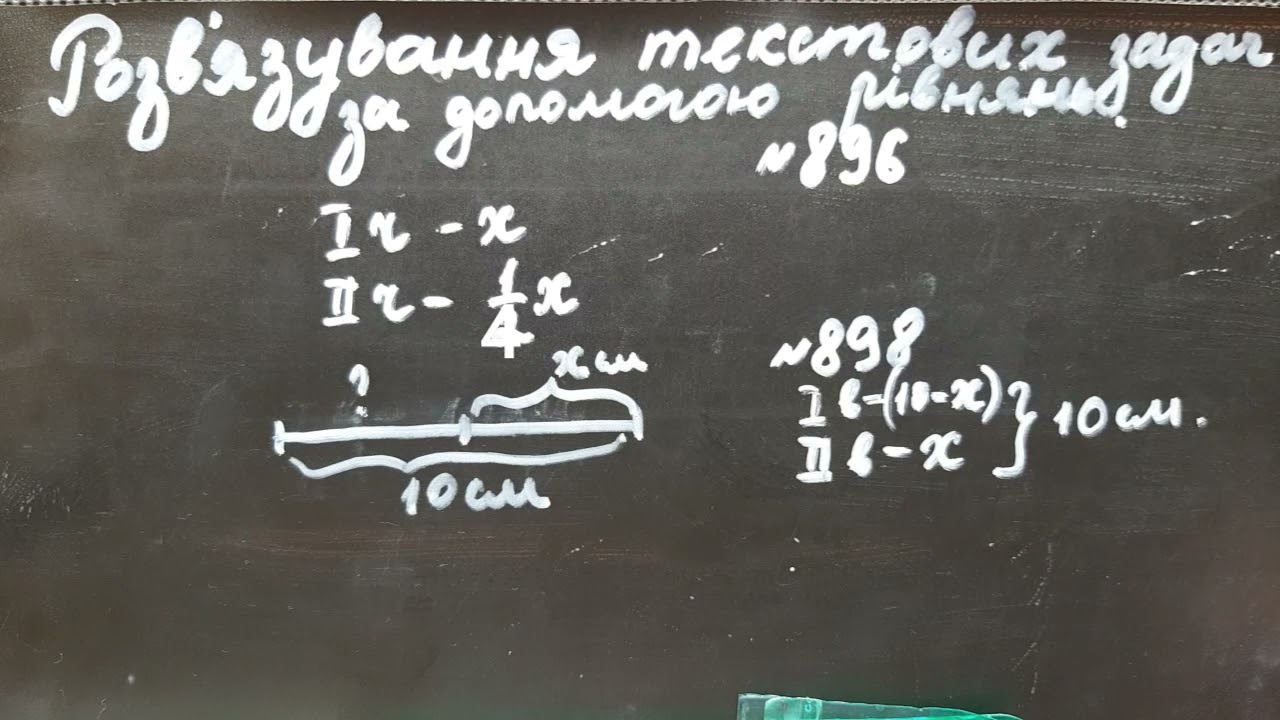 Розв'язування текстових задач
за допомогою рівнянь.
№896
I ч - x
II ч - 1/4 x
? x см
10 см
№898
I в - (10-x) } 10 см.
II в - x